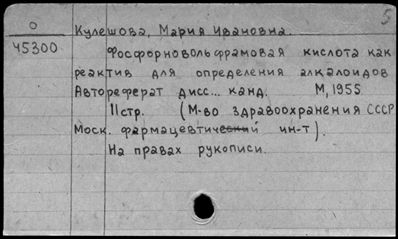 5
О
45300
Кулешова, Мария Ивановна.
Фосфорновольфрамовая кислота как
реактив для определения алкалоидов
Автореферат дисс... канд. М, 1955
11стр. (М-во здравоохранения СССР
Моск. фармацевтический ин-т).
На правах рукописи.